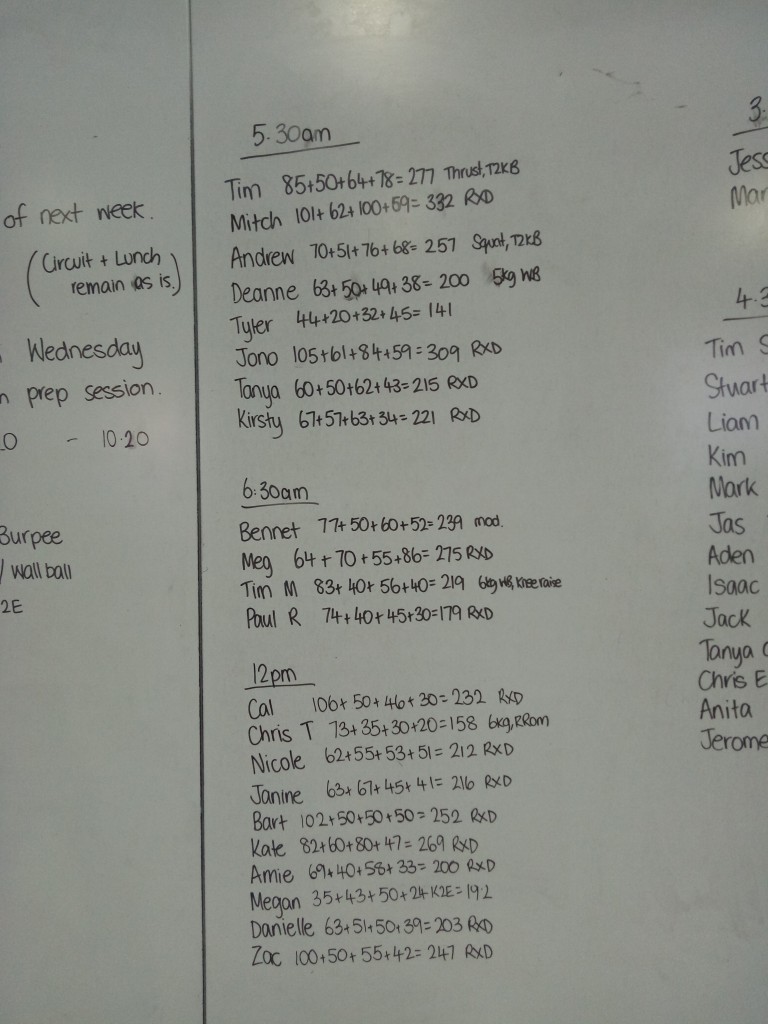 of next week.
(Circuit + Lunch
remain as is.)
Wednesday
prep session.
- 10.20
Burpee
/ wall ball
2E
5.30am
Tim 85+50+64+78=277 Thrust,T2KB
Mitch 101+62+100+69=332 RXD
Andrew 70+51+76+68=257 Squat,T2KB
Deanne 63+50+49+38=200 5kg WB
Tyler 44+20+32+45=141
Jono 105+61+84+59=309 RXD
Tanya 60+50+62+43=215 RXD
Kirsty 67+57+63+34=221 RXD
6:30am
Bennet 77+50+60+52=239 mod.
Meg 64+70+55+86=275 RXD
Tim M 83+40+56+40=219 6kg WB, Knee raise
Paul R 74+40+45+30=179 RXD
12pm
Cal 106+50+46+30=232 RXD
Chris T 73+35+30+20=158 6kg,RRom
Nicole 62+55+53+51=212 RXD
Janine 63+67+45+41=216 RXD
Bart 102+50+50+50=252 RXD
Kate 82+60+80+47=269 RXD
Amie 69+40+58+33=200 RXD
Megan 35+43+50+24 K2E=19.2
Danielle 63+51+50+39=203 RXD
Zac 100+50+55+42=247 RXD
3.
Jess
Mar
4.3
Tim S
Stuart
Liam
Kim
Mark
Jas
Aden
Isaac
Jack
Tanya C
Chris E
Anita
Jerome